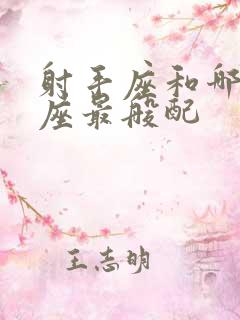 射手座和哪
座最般配
王志明